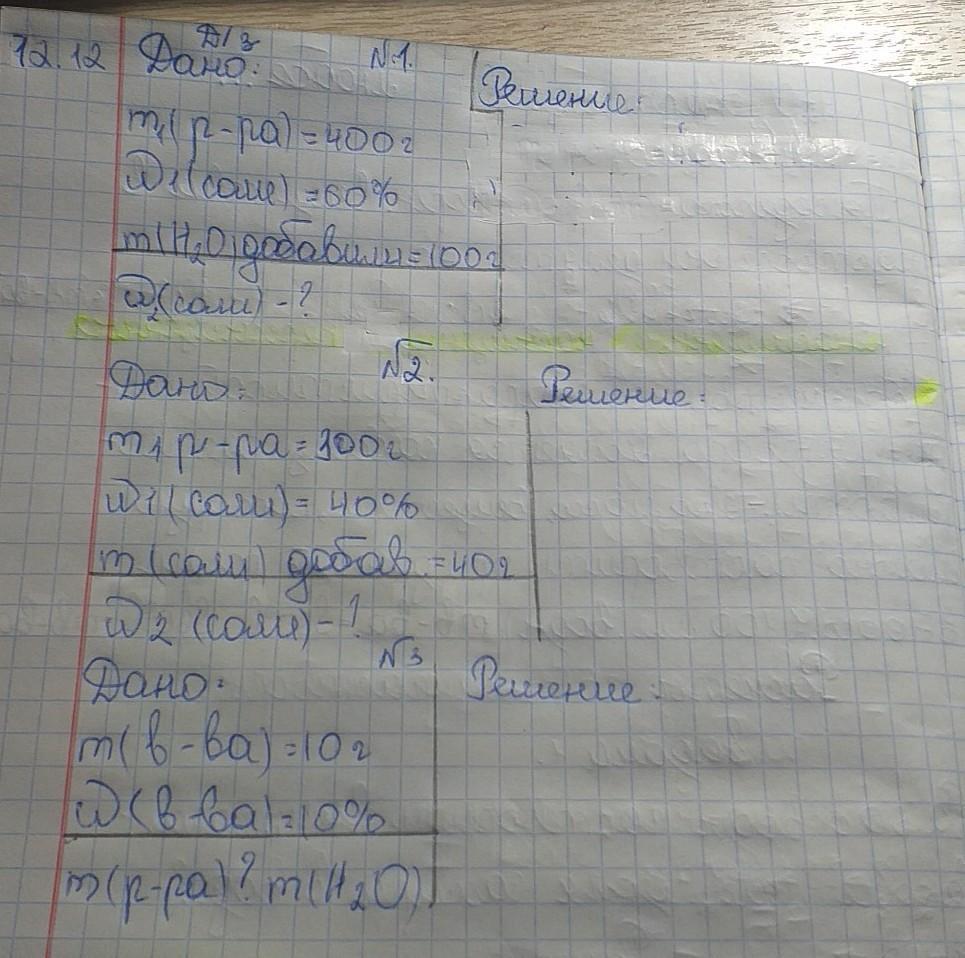 12.12 Д/з
Дано: №1. Решение:
m₁(р-ра)=400г
ω1(соли)=60%
m(H₂O)добавили=100г
ω₂(соли)-?
№2.
Дано: Решение:
m1 р-ра=300г
ω1(соли)=40%
m(соли) добав.=40г
ω2 (соли)-?
№3
Дано: Решение:
m(в-ва)=10г
ω(в-ва)=10%
m(р-ра)? m(H₂O)